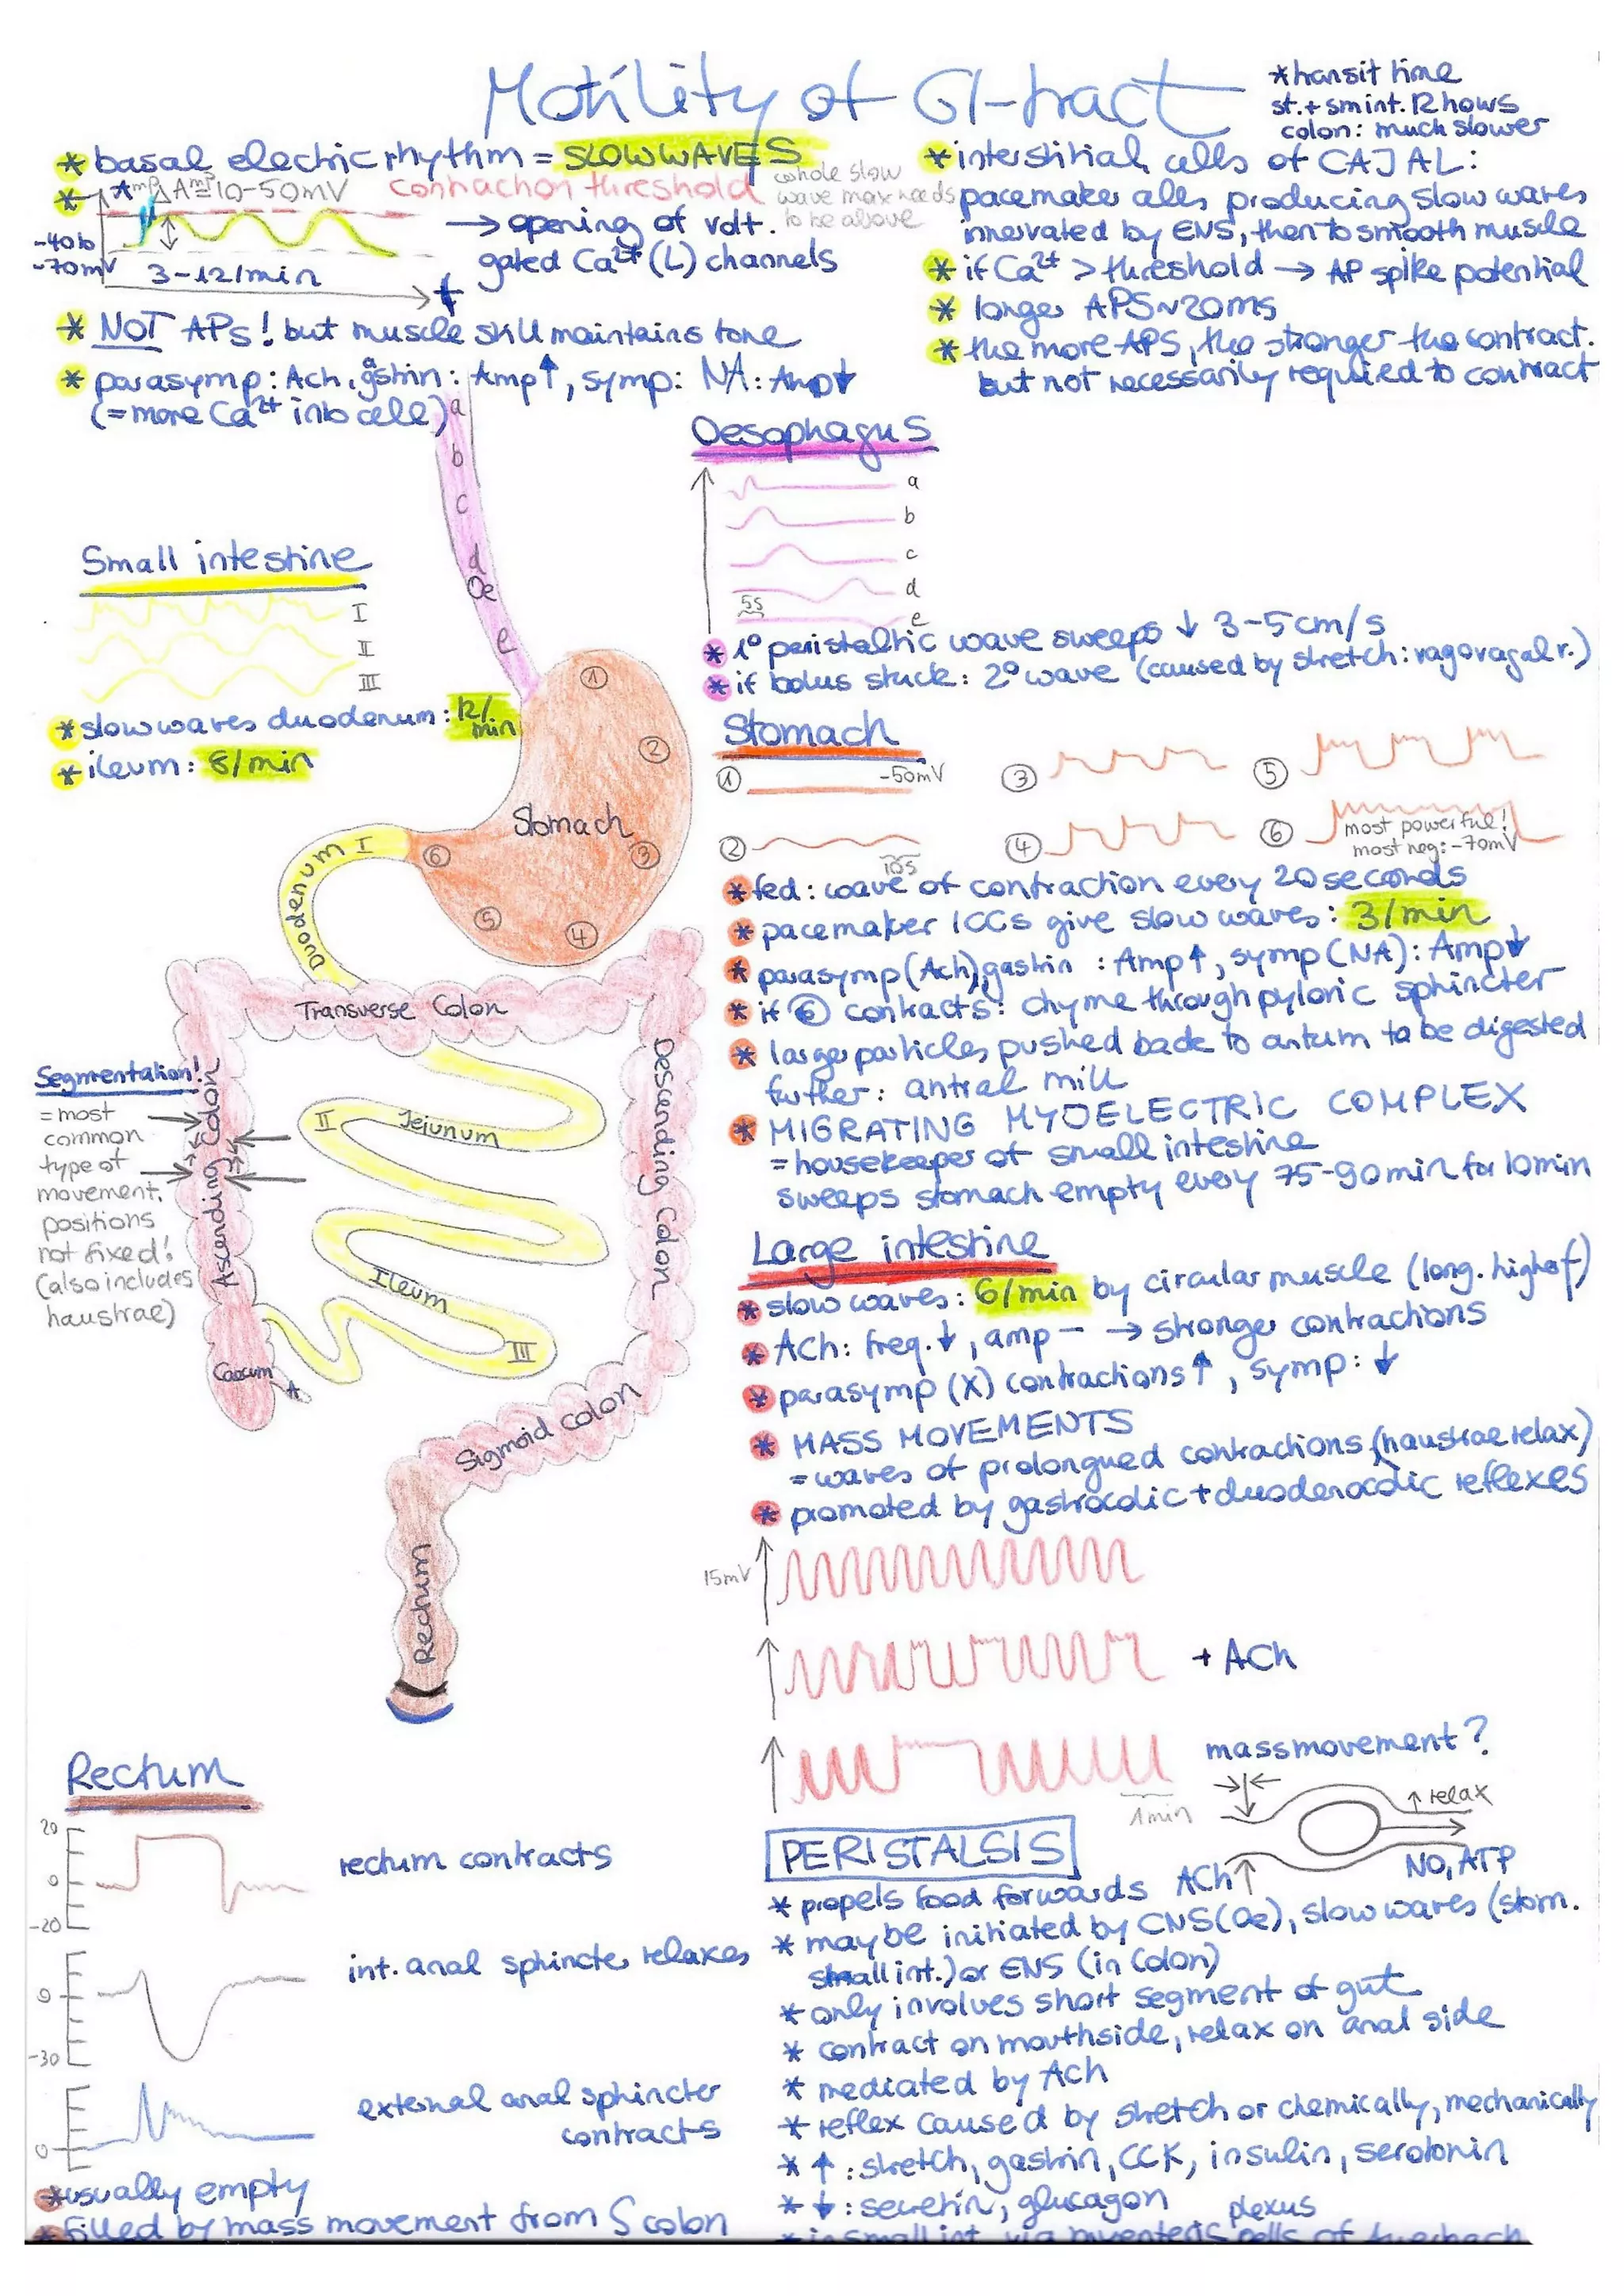 Motility of GI-tract
*transit time
st.+sm int. 12 hours
colon: much slower
* basal electric rhythm = SLOW WAVES
*
Amp
ΔAmp≅10-50mV
contraction threshold
whole slow
wave max needs
to be above
-40 to
-70mV
3-12/min
t
→ opening of volt.
gated Ca²⁺ (L) channels
* NOT APs! but muscle still maintains tone
* parasymp: Ach, gastrin: Amp↑, symp: NA: Amp↓
(=more Ca²⁺ into cell)
* interstitial cells of CAJAL:
pacemaker cells producing slow waves
innervated by ENS, then to smooth muscle
* if Ca²⁺ > threshold → AP spike potential
* longer APS ~20ms
* the more APS, the stronger the contract.
but not necessarily required to contract
a
b
c
d
Oe
e
Oesophagus
a
b
c
d
5s
e
* 1° peristaltic wave sweeps ↓ 3-5cm/s
* if bolus stuck: 2° wave (caused by stretch: vagovagal r.)
Small intestine
I
II
III
* slow waves duodenum: 12/
min
* ileum: 8/min
Stomach
① -50mV
②
10s
③
④
⑤
⑥
most powerful!
most neg: -70mV
* fed: wave of contraction every 20 seconds
* pacemaker ICCs give slow waves: 3/min
* parasymp (Ach), gastrin : Amp↑, symp (NA): Amp↓
* if ⑥ contracts: chyme through pyloric sphincter
* larger particles pushed back to antrum to be digested
further: antral mill
* MIGRATING MYOELECTRIC COMPLEX
= housekeeper of small intestine
sweeps stomach empty every 75-90min for 10min
①
②
Stomach
③
④
⑤
⑥
Duodenum I
Transverse Colon
Ascending Colon
Descending Colon
II Jejunum
Ileum
III
Caecum
A
Sigmoid colon
Rectum
Segmentation!
= most
common
type of
movement.
positions
not fixed!
(also includes
haustrae)
Large intestine
* slow waves: 6/min by circular muscle (long. higher f)
* ACh: freq.↓, amp – → stronger contractions
* parasymp (X) contractions↑, symp: ↓
* MASS MOVEMENTS
= waves of prolongued contractions (haustrae relax)
* promoted by gastrocolic + duodenocolic reflexes
15mV
+ ACh
mass movement?
1min
↑ relax
ACh↑
NO, ATP
Rectum
20
0
-20
rectum contracts
0
-30
int. anal sphincter relaxes
0
external anal sphincter
contracts
* usually empty
* filled by mass movement from S colon
PERISTALSIS
* propels food forwards
* may be initiated by CNS (Oe), slow waves (stom.
small int.) or ENS (in Colon)
* only involves short segment of gut
* contract on mouthside, relax on anal side
* mediated by Ach
* reflex caused by stretch or chemically, mechanically
* ↑: stretch, gastrin, CCK, insulin, serotonin
* ↓: secretin, glucagon
plexus
* in small int. via myenteric cells of Auerbach